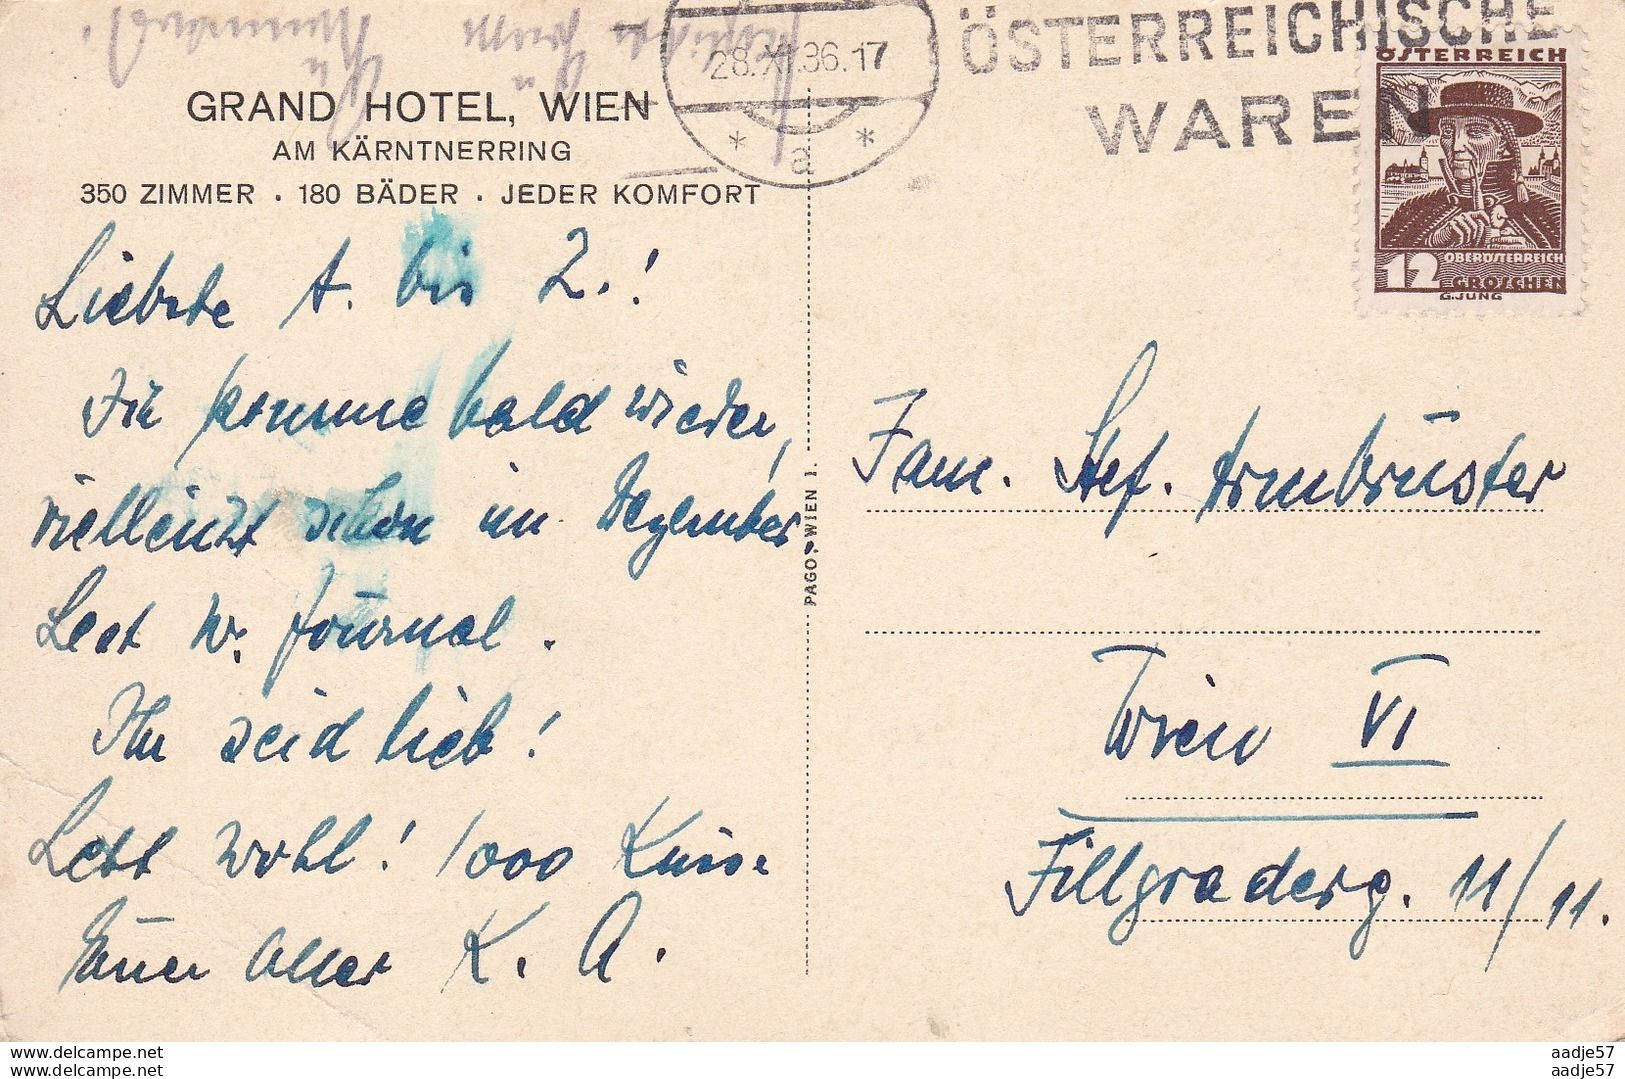 GRAND HOTEL, WIEN
AM KÄRNTNERRING
350 ZIMMER . 180 BÄDER . JEDER KOMFORT
Liebste A. bis Z.!
Ich komme bald wieder,
vielleicht schon im Dezember
Lest N. Journal.
Ihr seid lieb!
Lebt wohl! 1000 Küsse
Euer alter K. A.
PAGO, WIEN I.
28.XI.36.17
* a *
ÖSTERREICHISCHE
WAREN
ÖSTERREICH
OBERÖSTERREICH
12 GROSCHEN
G.JUNG
Fam. Stef. Armbrüster
Wien VI
Fillgraderg. 11/11.
www.delcampe.net
www.delcampe.net
aadje57
aadje57